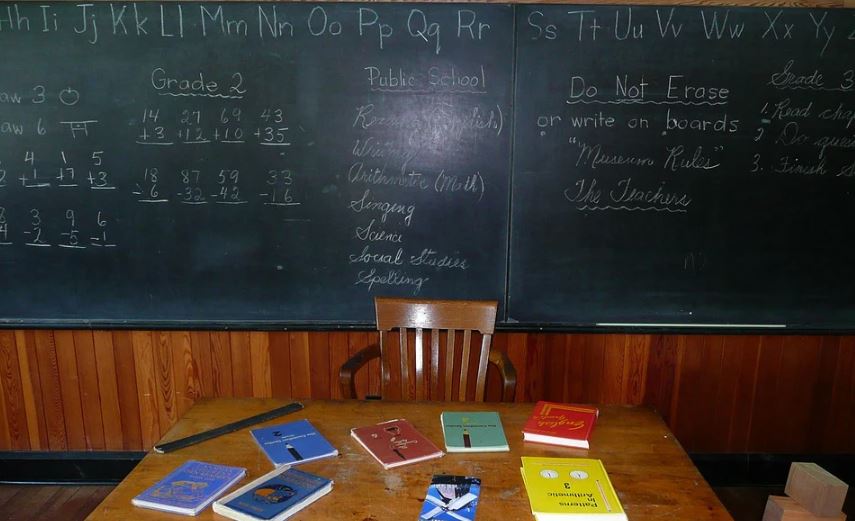 Hh Ii Jj Kk Ll Mm Nn Oo Pp Qq Rr Ss Tt Uu Vv Ww Xx Yy
aw 3
aw 6
4 1 5
+1 +7 +3
3 9 6
-2 -5 -1
Grade 2
14 27 69 43
+3 +12 +10 +35
18 87 59 33
-6 -32 -42 -16
Public School
(English)
Writing
Arithmetic (Math)
Singing
Science
Social Studies
Spelling
Do Not Erase
or write on boards
"Museum Rules"
The Teachers
Grade 3
1. Read chap
2 Do ques
3. Finish S
English
Patterns
In
Arithmetic
3